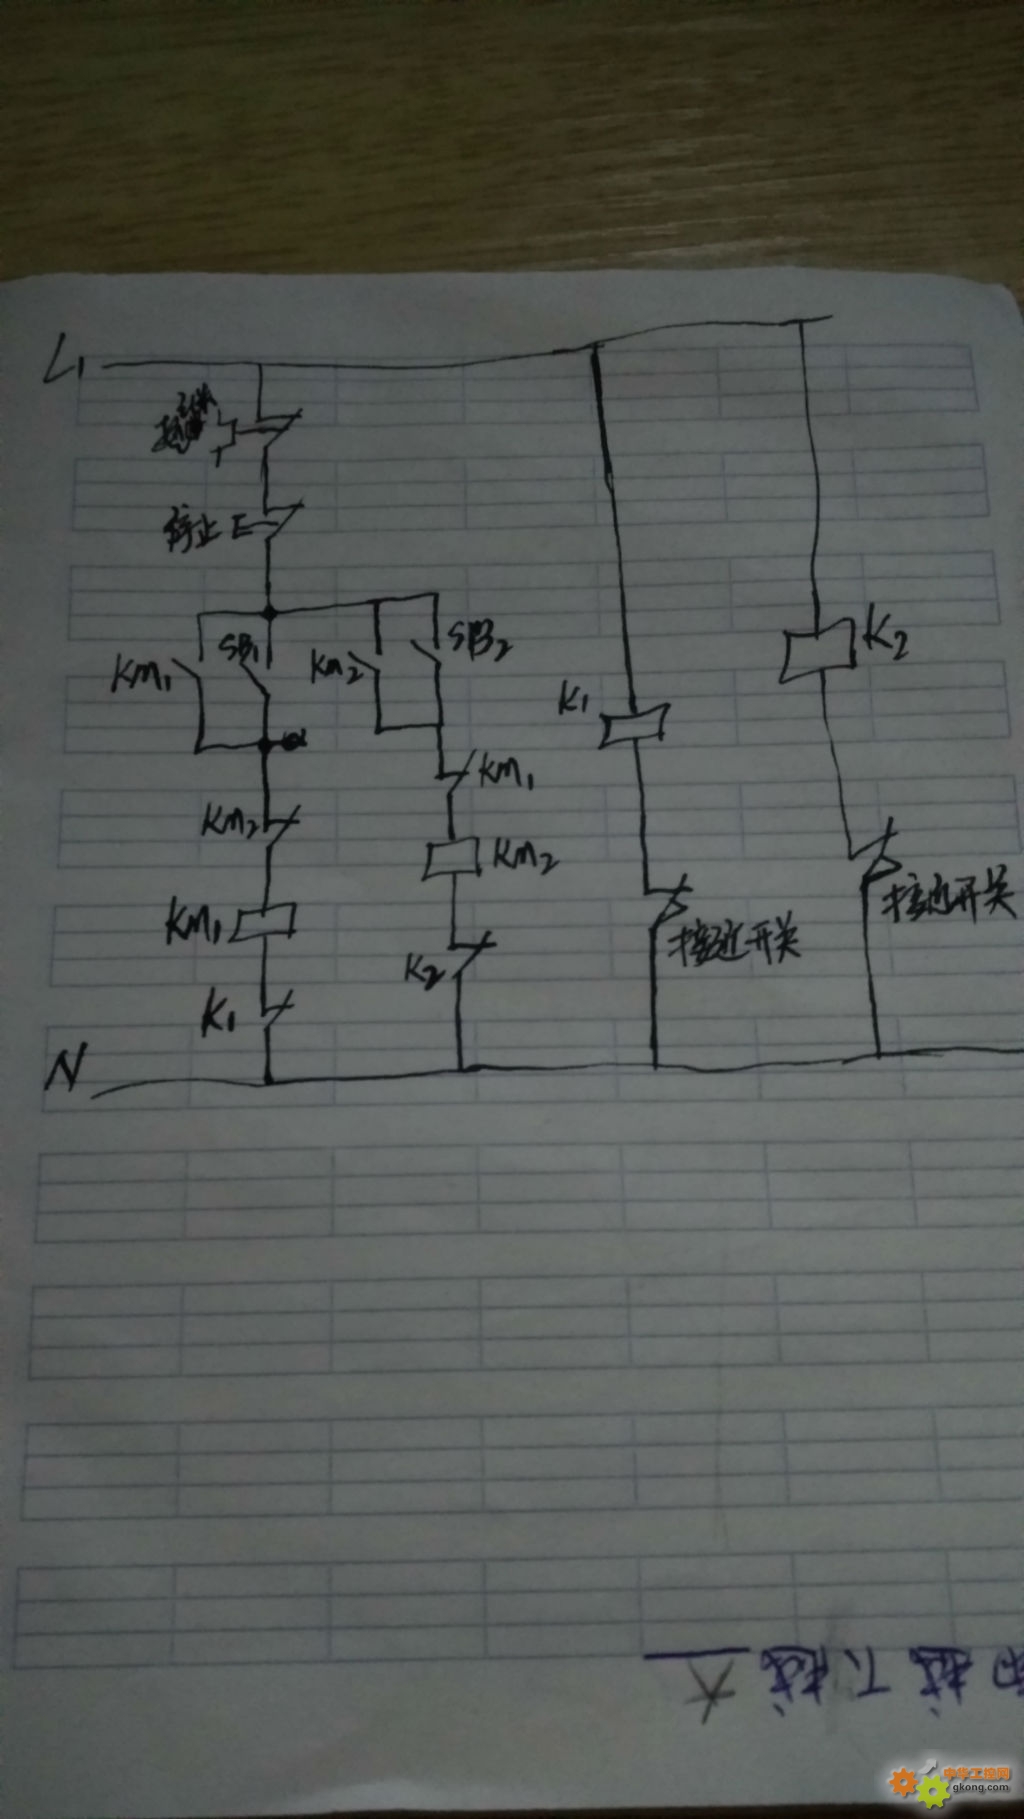 L1
停止 E
KM1
SB1
KM2
SB2
K1
K2
KM2
KM1
KM2
KM1
K2
K1
接近开关
接近开关
N
中华工控网
gkong.com